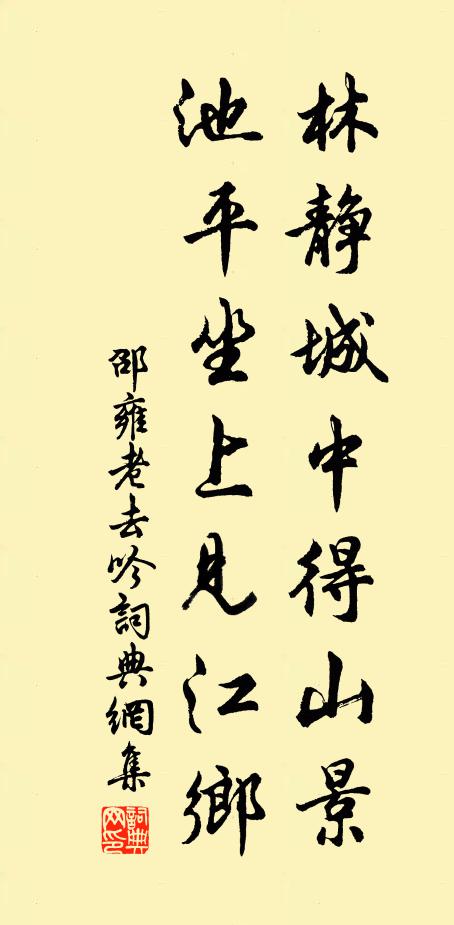 林静城中得山景
池平坐上見江鄉
邵雍老去吟詞典網集
詞典网印